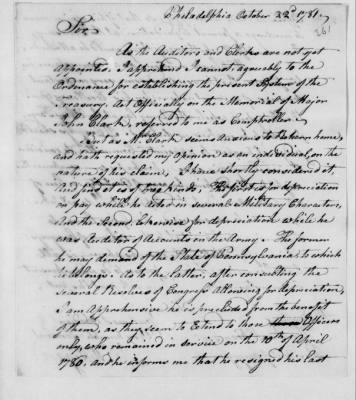 Philadelphia October 22d 1781.
261
Sir
As the Auditors and Clerks are not yet
appointed. I apprehend I cannot agreeably to the
Ordinance for establishing the present System of the
Treasury. Act Officially on the Memorial of Major
John Clark, referred to me as Comptroller.
But as Mr. Clark seems Anxious to Return home,
and hath requested my Opinion as an individual, on the
nature of his claim, I have shortly considered it,
And find it is of two kinds. The first is for depreciation
on pay while he Acted in several Military Characters,
And the Second, Extensive for depreciation while he
was Auditor of Accounts in the Army. The former
he may demand of the State of Pennsylvania, to which
he belongs. As to the latter, after consulting the
several Resolves of Congress Allowing for depreciation,
I am Apprehensive he is precluded from the benefit
of them, as they seem to Extend to those Officers
only, who remained in service on the 10th of April
1780. And he informs me that he resigned his last